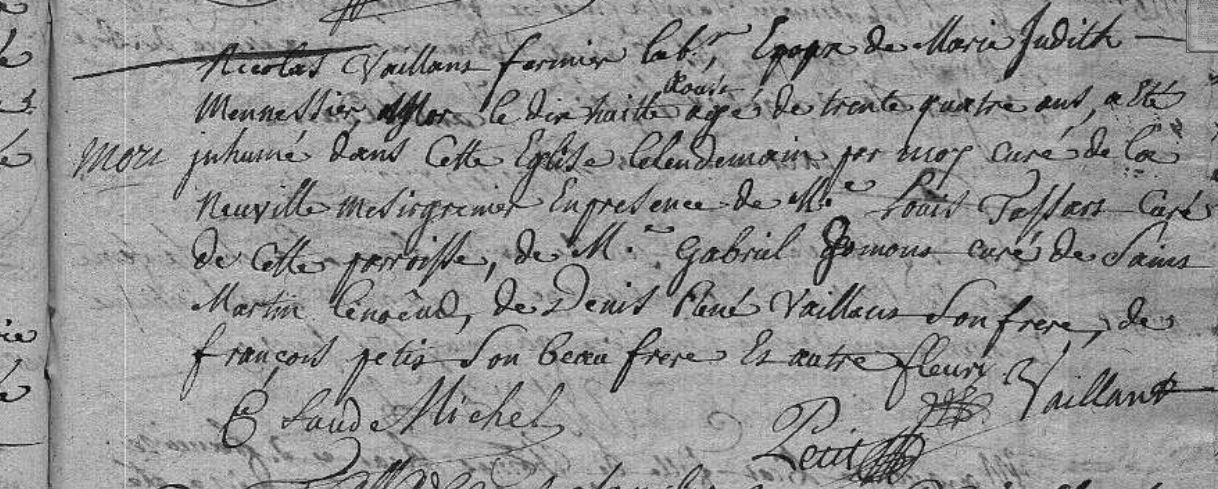 Nicolas Vaillant fermier lab.r, Epoux de Marie Judith
Mennessier, le dix huitte aoust agé de trente quatre ans, a Eté
mort
jnhumé dans Cette Eglise lelendemain par moy curé de la
Neuville mesirgrenier En presence de M.e Louis Tassart Curé
de Cette parroisse, de M.e Gabriel curé de Saint
Martin lenoeud, de Denis René Vaillant Son frere, de
françois petit Son beau frere Et autre
Vaillant
Michel
Petit